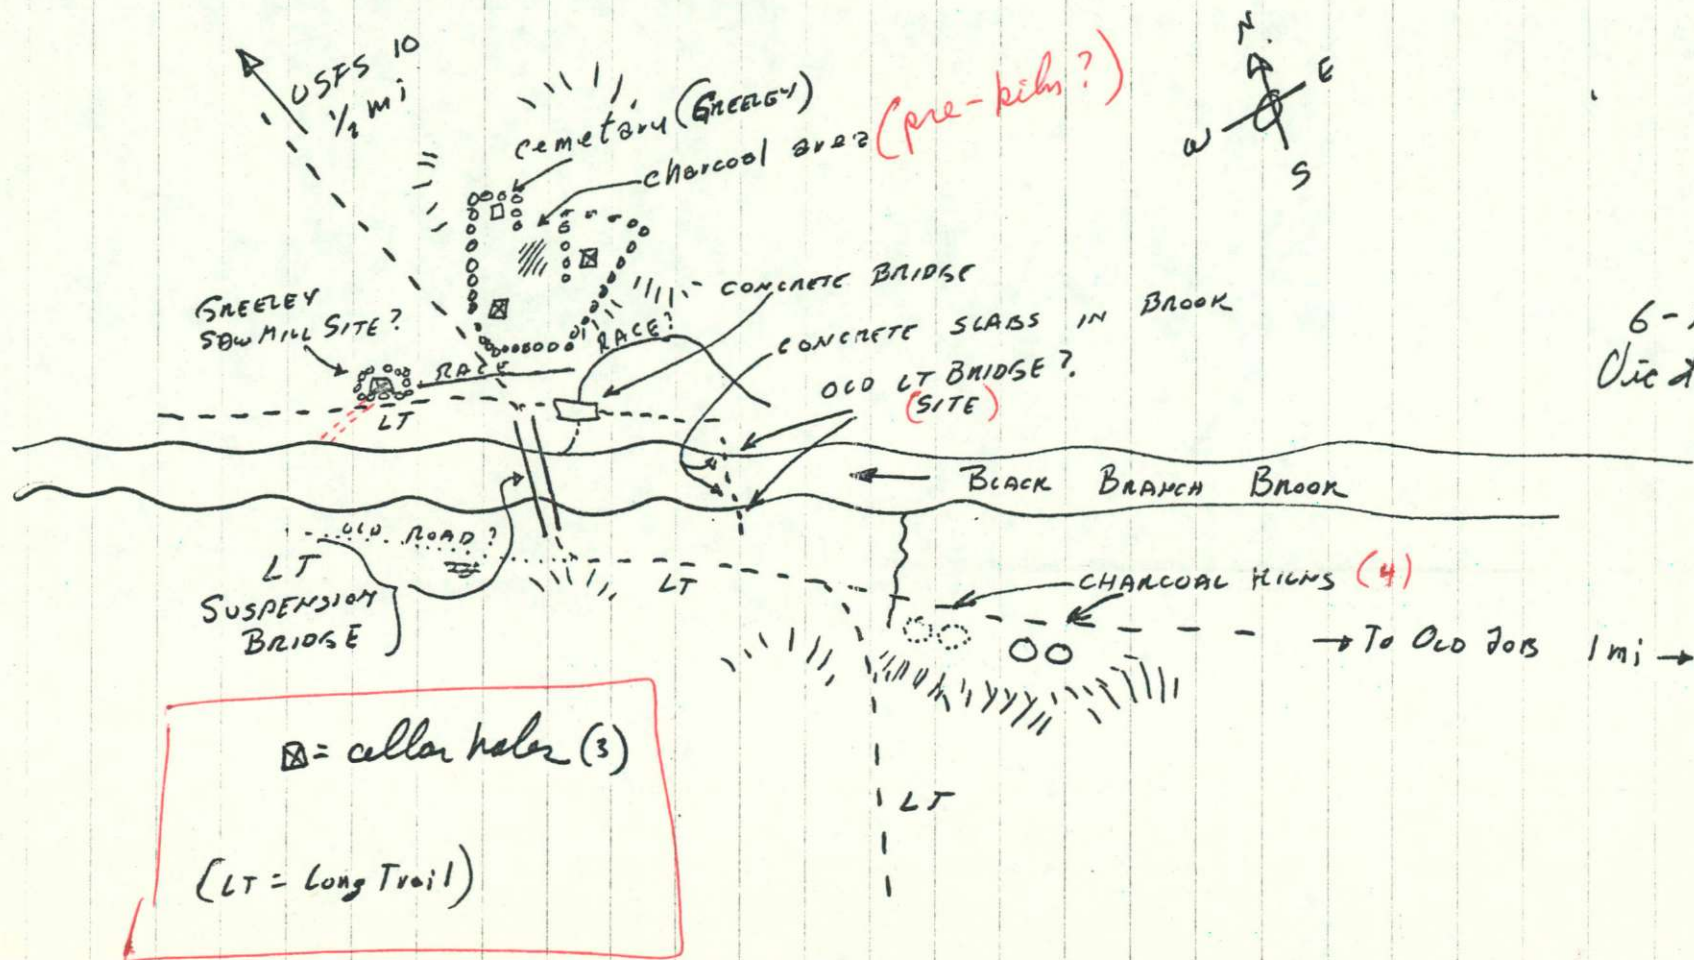 USFS 10
1/2 mi
cemetary (GREELEY)
charcoal area (pre-kiln?)
N.
E
W
S
GREELEY
SAWMILL SITE?
RACE
RACE?
CONCRETE BRIDGE
CONCRETE SLABS IN BROOK
OLD LT BRIDGE?
(SITE)
LT
BLACK BRANCH BROOK
OLD ROAD?
LT
SUSPENSION
BRIDGE
LT
CHARCOAL KILNS (4)
→ To OLD JOB 1 mi →
LT
⊠ = cellar holes (3)
(LT = Long Trail)
6-
Vic